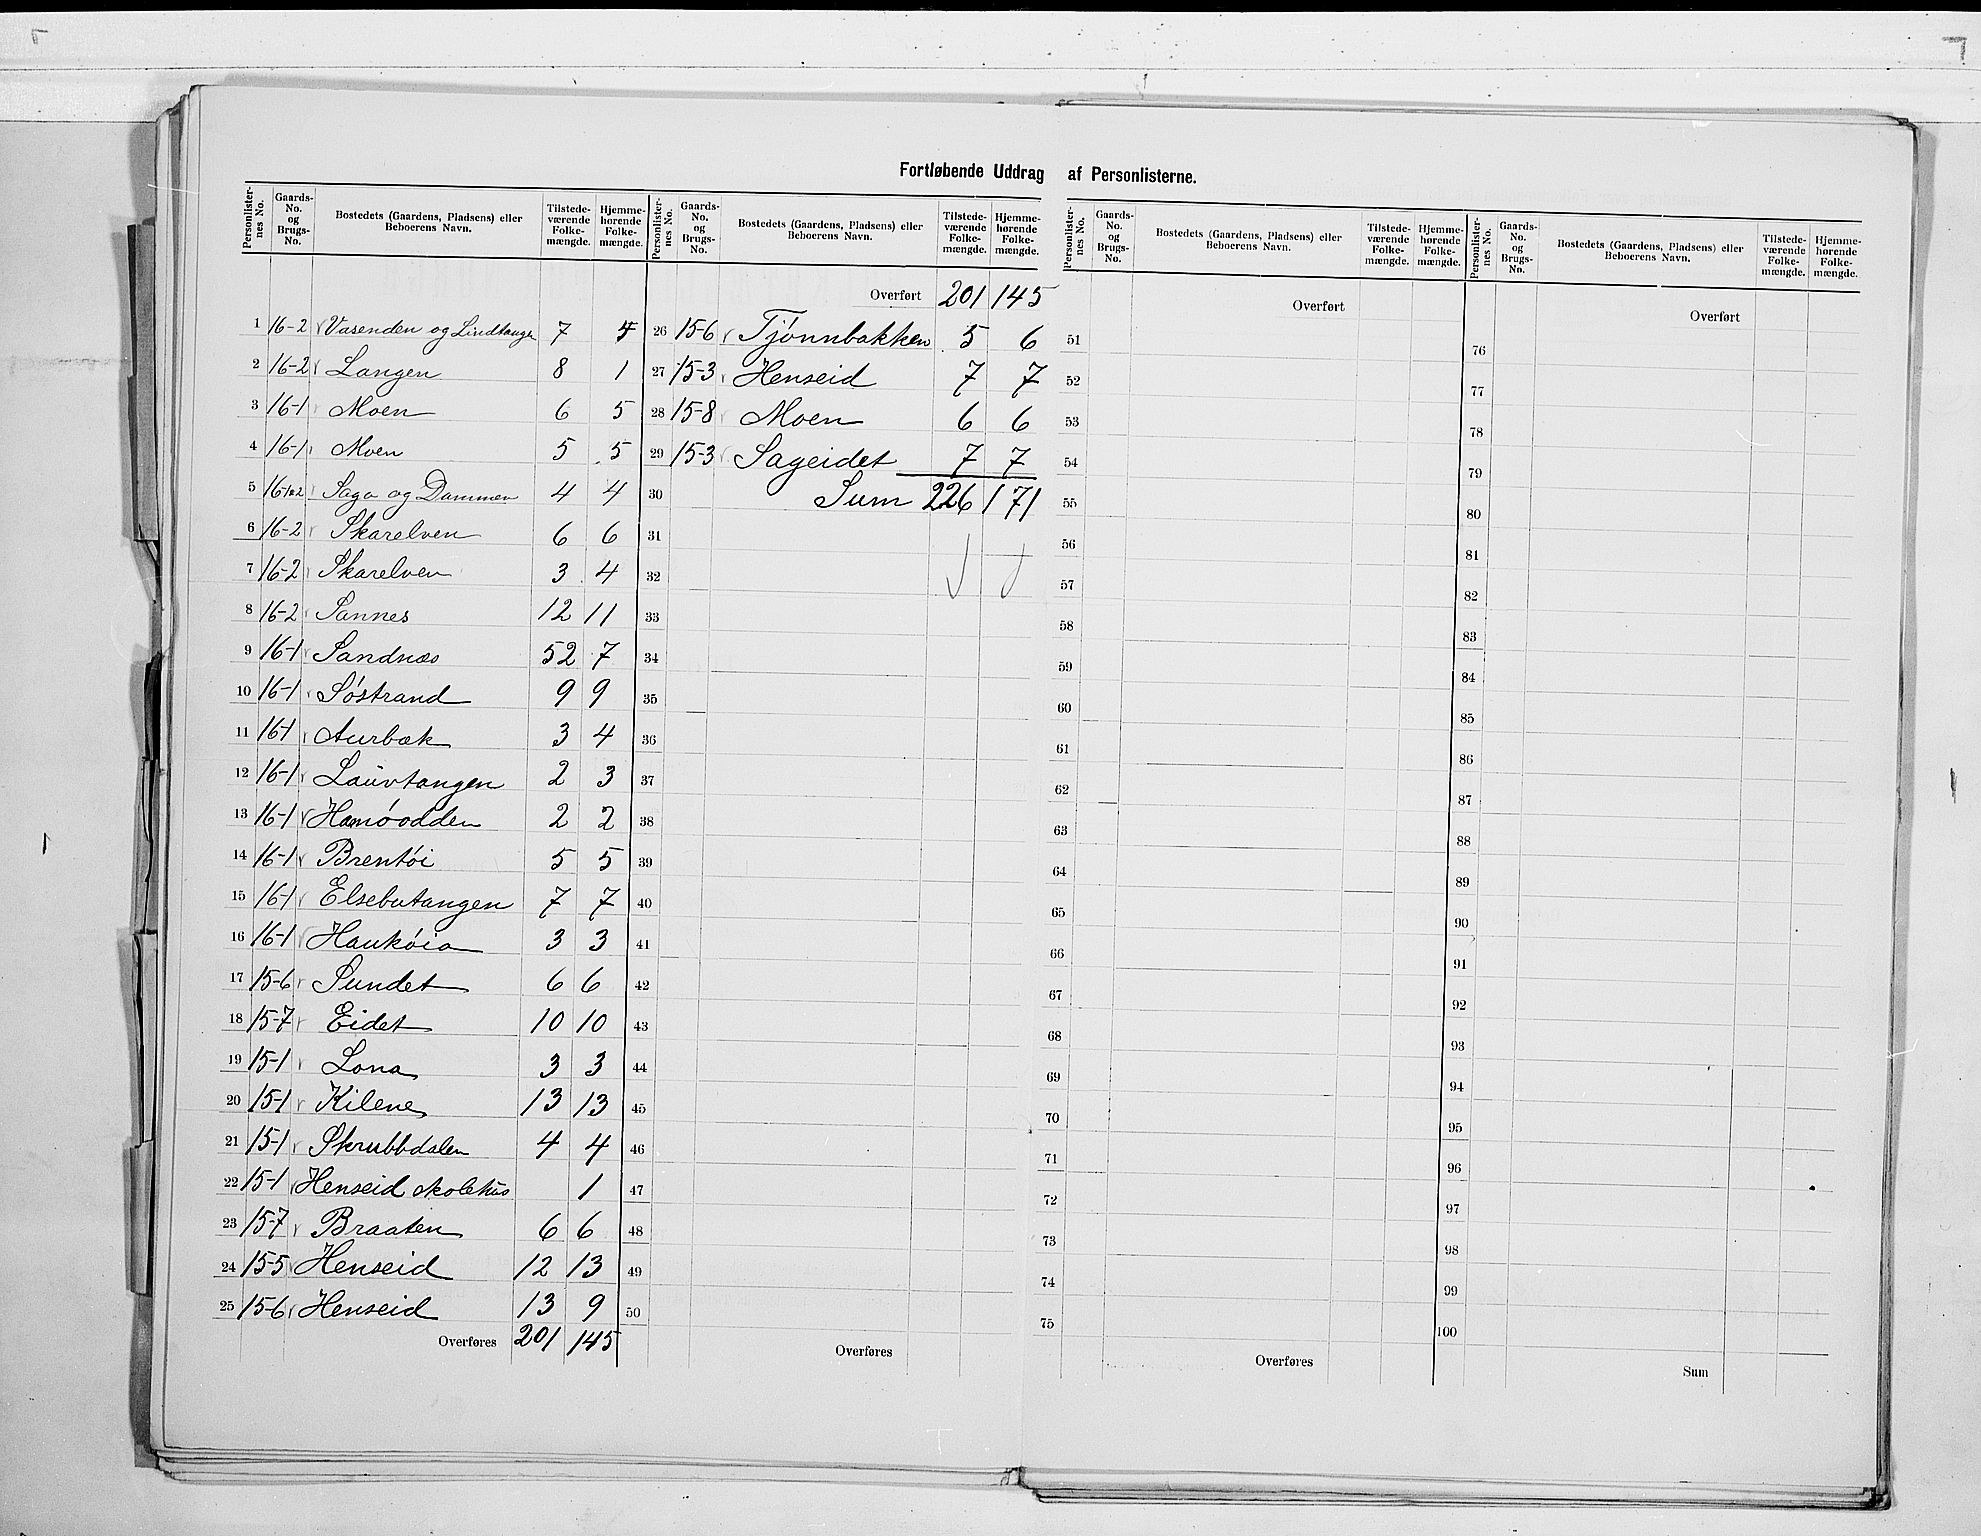 Fortløbende Uddrag af Personlisterne.
Personlister-nes No. Gaards-No. og Brugs-No. Bostedets (Gaardens, Pladsens) eller Beboerens Navn. Tilstede-værende Folke-mængde. Hjemme-hørende Folke-mængde.
1 16-2 Vasenden og Lindtangen 7
2 16-2 Langen 8 1
3 16-1 Moen 6 5
4 16-1 Moen 5 5
5 16-1&2 Saga og Dammen 4 4
6 16-2 Skarelven 6 6
7 16-2 Skarelven 3 4
8 16-2 Sannes 12 11
9 16-1 Sandnæs 52 7
10 16-1 Søstrand 9 9
11 16-1 Aurbæk 3 4
12 16-1 Lauvtangen 2 3
13 16-1 Hamóodden 2 2
14 16-1 Brentøi 5 5
15 16-1 Elsebutangen 7 7
16 16-1 Haukøia 3 3
17 15-6 Sundet 6 6
18 15-7 Eidet 10 10
19 15-1 Lona 3 3
20 15-1 Kilene 13 13
21 15-1 Skrubbdalen 4 4
22 15-1 Henseid skolehus 1
23 15-7 Braaten 6 6
24 15-5 Henseid 12 13
25 15-6 Henseid 13 9
Overføres 201 145
Personlister-nes No. Gaards-No. og Brugs-No. Bostedets (Gaardens, Pladsens) eller Beboerens Navn. Tilstede-værende Folke-mængde. Hjemme-hørende Folke-mængde.
Overført 201 145
26 15-6 Tjønnbakken 5 6
27 15-3 Henseid 7 7
28 15-8 Moen 6 6
29 15-3 Sageidet 7 7
30 Sum 226 171
31
32
33
34
35
36
37
38
39
40
41
42
43
44
45
46
47
48
49
50
Overføres
Personlister-nes No. Gaards-No. og Brugs-No. Bostedets (Gaardens, Pladsens) eller Beboerens Navn. Tilstede-værende Folke-mængde. Hjemme-hørende Folke-mængde.
Overført
51
52
53
54
55
56
57
58
59
60
61
62
63
64
65
66
67
68
69
70
71
72
73
74
75
Overføres
Personlister-nes No. Gaards-No. og Brugs-No. Bostedets (Gaardens, Pladsens) eller Beboerens Navn. Tilstede-værende Folke-mængde. Hjemme-hørende Folke-mængde.
Overført
76
77
78
79
80
81
82
83
84
85
86
87
88
89
90
91
92
93
94
95
96
97
98
99
100
Sum